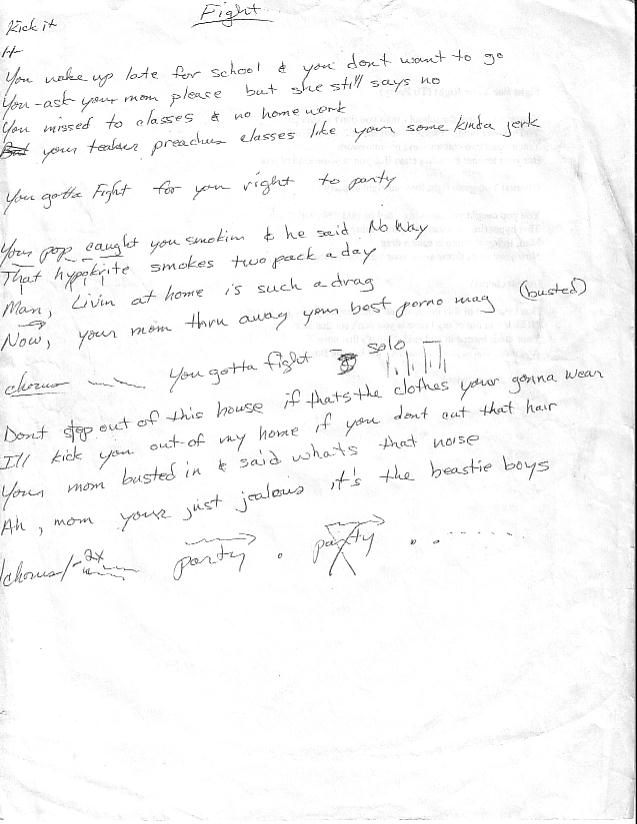 Fight
Kick it
H
You wake up late for school & you dont want to go
You ask your mom please but she still says no
You missed to classes & no homework
But your teacher preaches classes like your some kinda jerk
You gotta Fight for your right to party
Your pop caught you smokim & he said No Way
That hypokrite smokes two pack a day
Man, Livin at home is such a drag
Now, your mom thru away your best porno mag (busted)
chorus You gotta fight solo
Dont step out of this house if thats the clothes your gonna wear
I'll kick you out of my home if you dont cut that hair
Your mom busted in & said whats that noise
Ah, mom your just jealous it's the beastie boys
chorus/ - 2x party . party . . . . . . . .